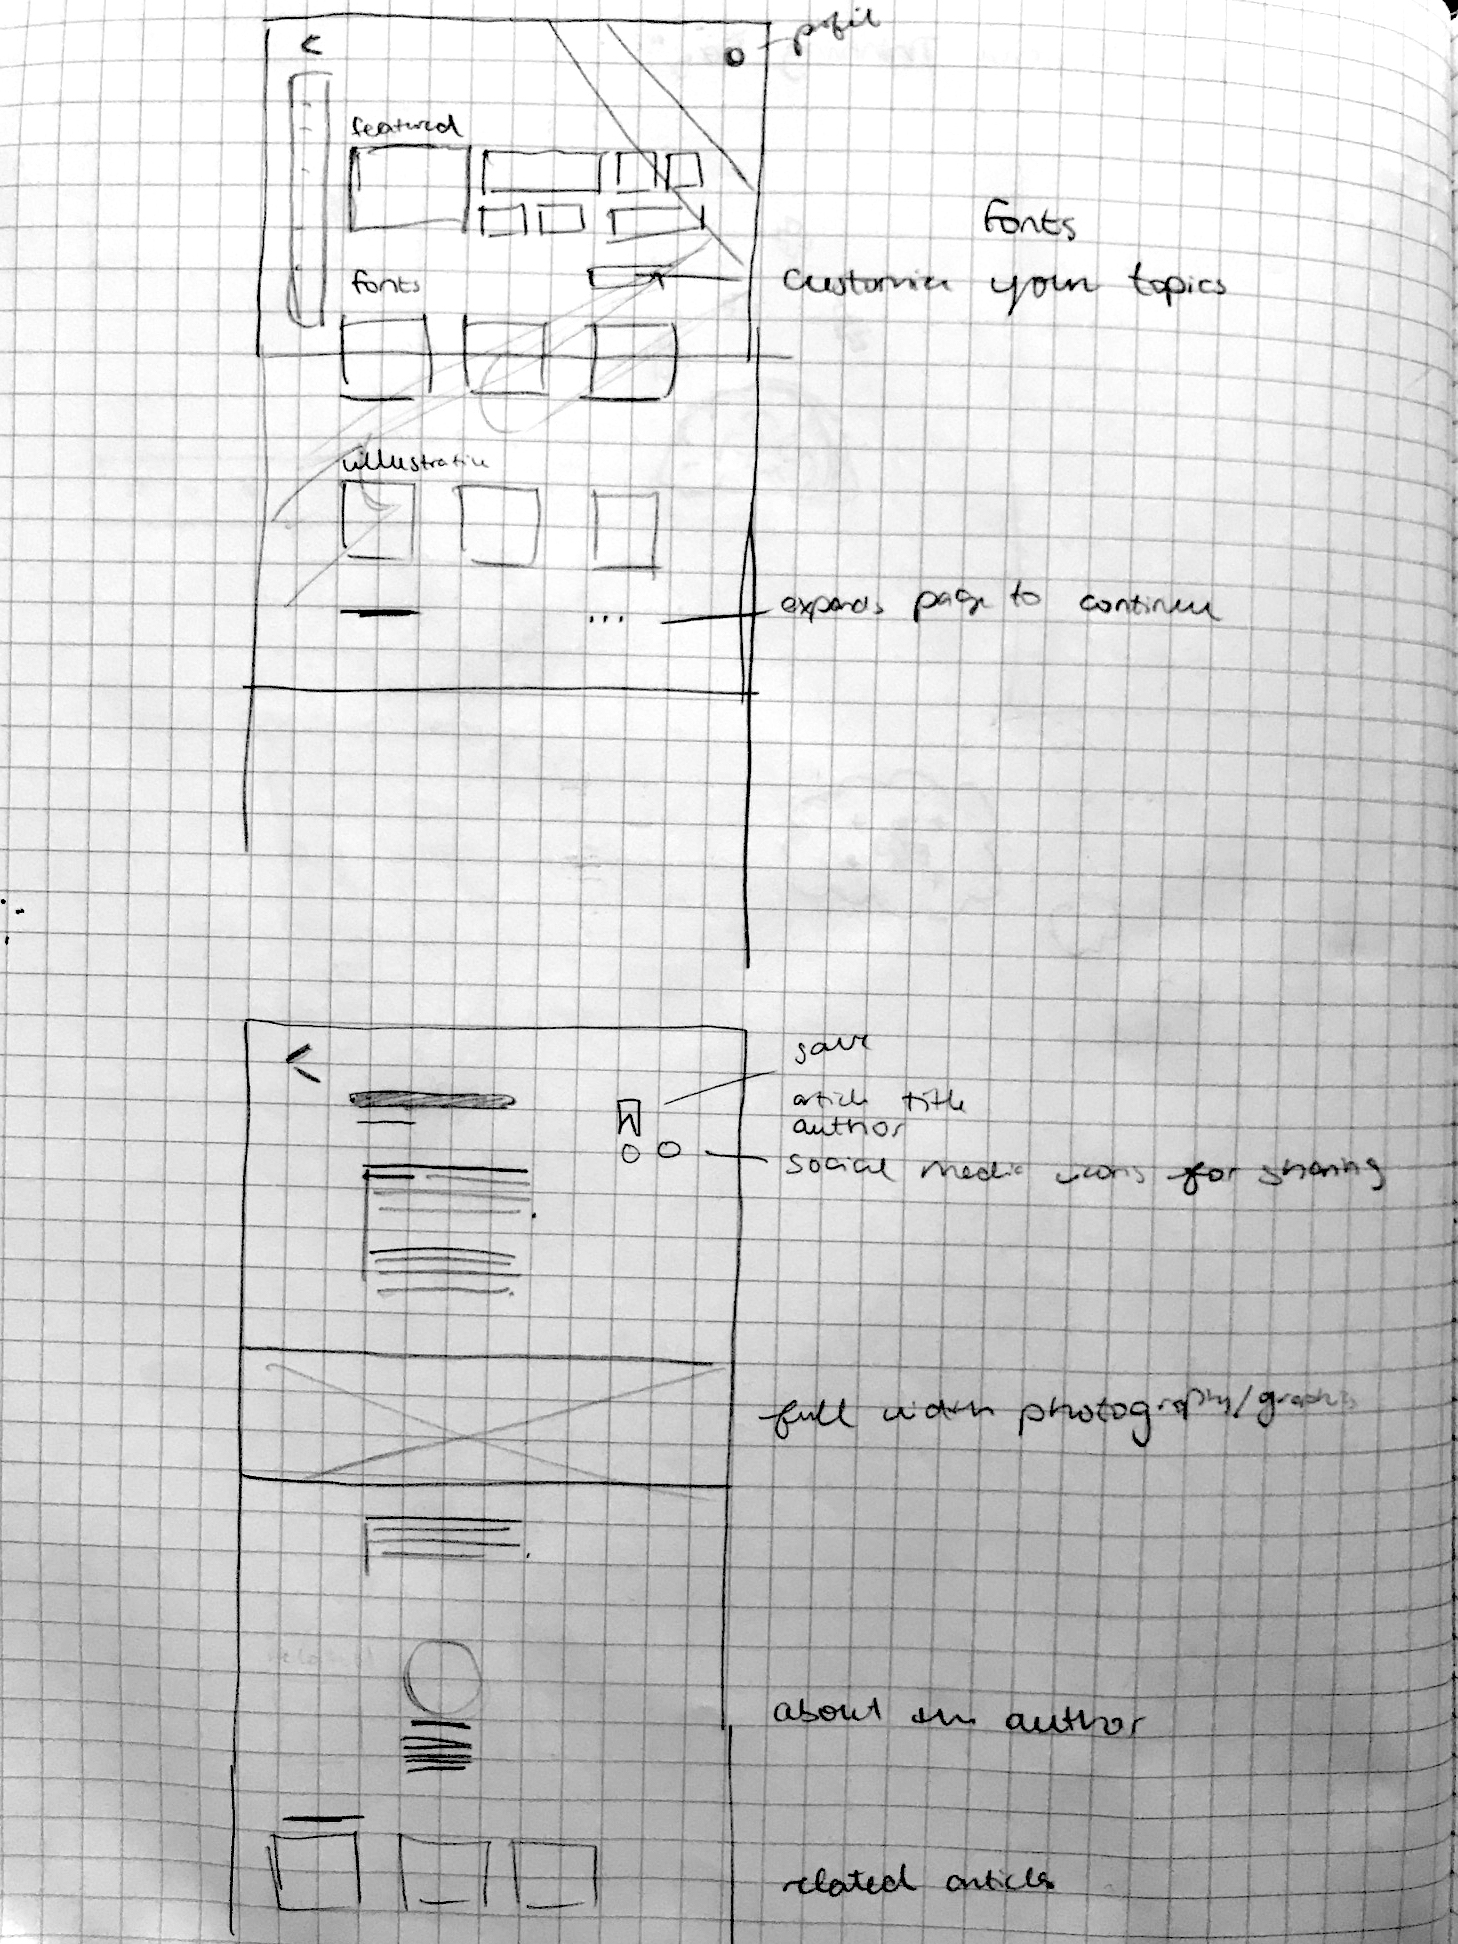 profil
featured
Fonts
fonts
customize your topics
illustration
expands page to continue
save
article title
author
social media icons for sharing
full width photography/graphics
related
about the author
related articles